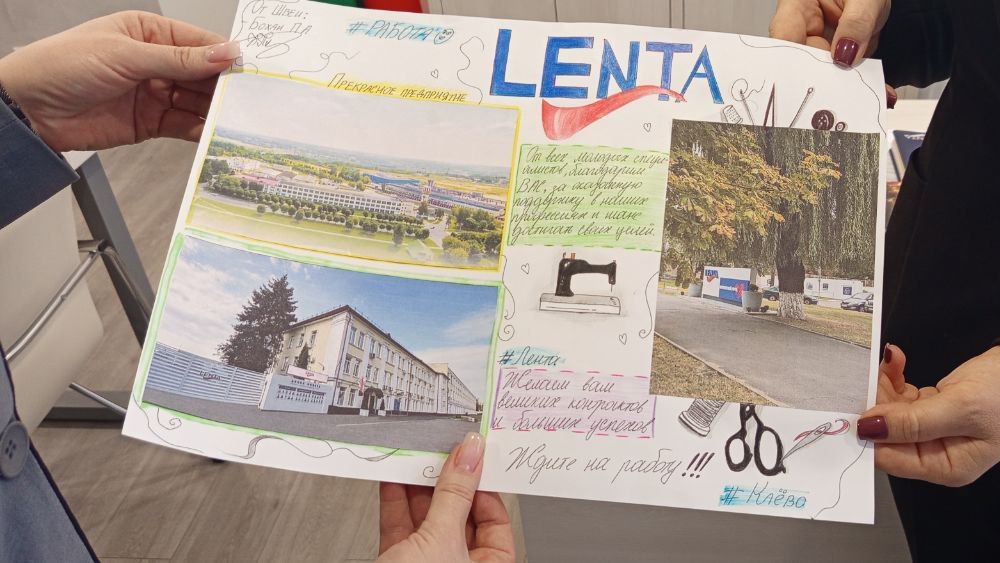 От Швеи:
Бохан П.А
#РАБОТА
LENTA
ПРЕКРАСНОЕ ПРЕДПРИЯТИЕ
От всех молодых специ-
алистов, благодарим
ВАС за оказанную
поддержку в наших
профессиях и шанс
достигать своих целей.
#Лента
Желаем вам
великих контрактов
и больших успехов
Ждите на работу!!!
#Клёво